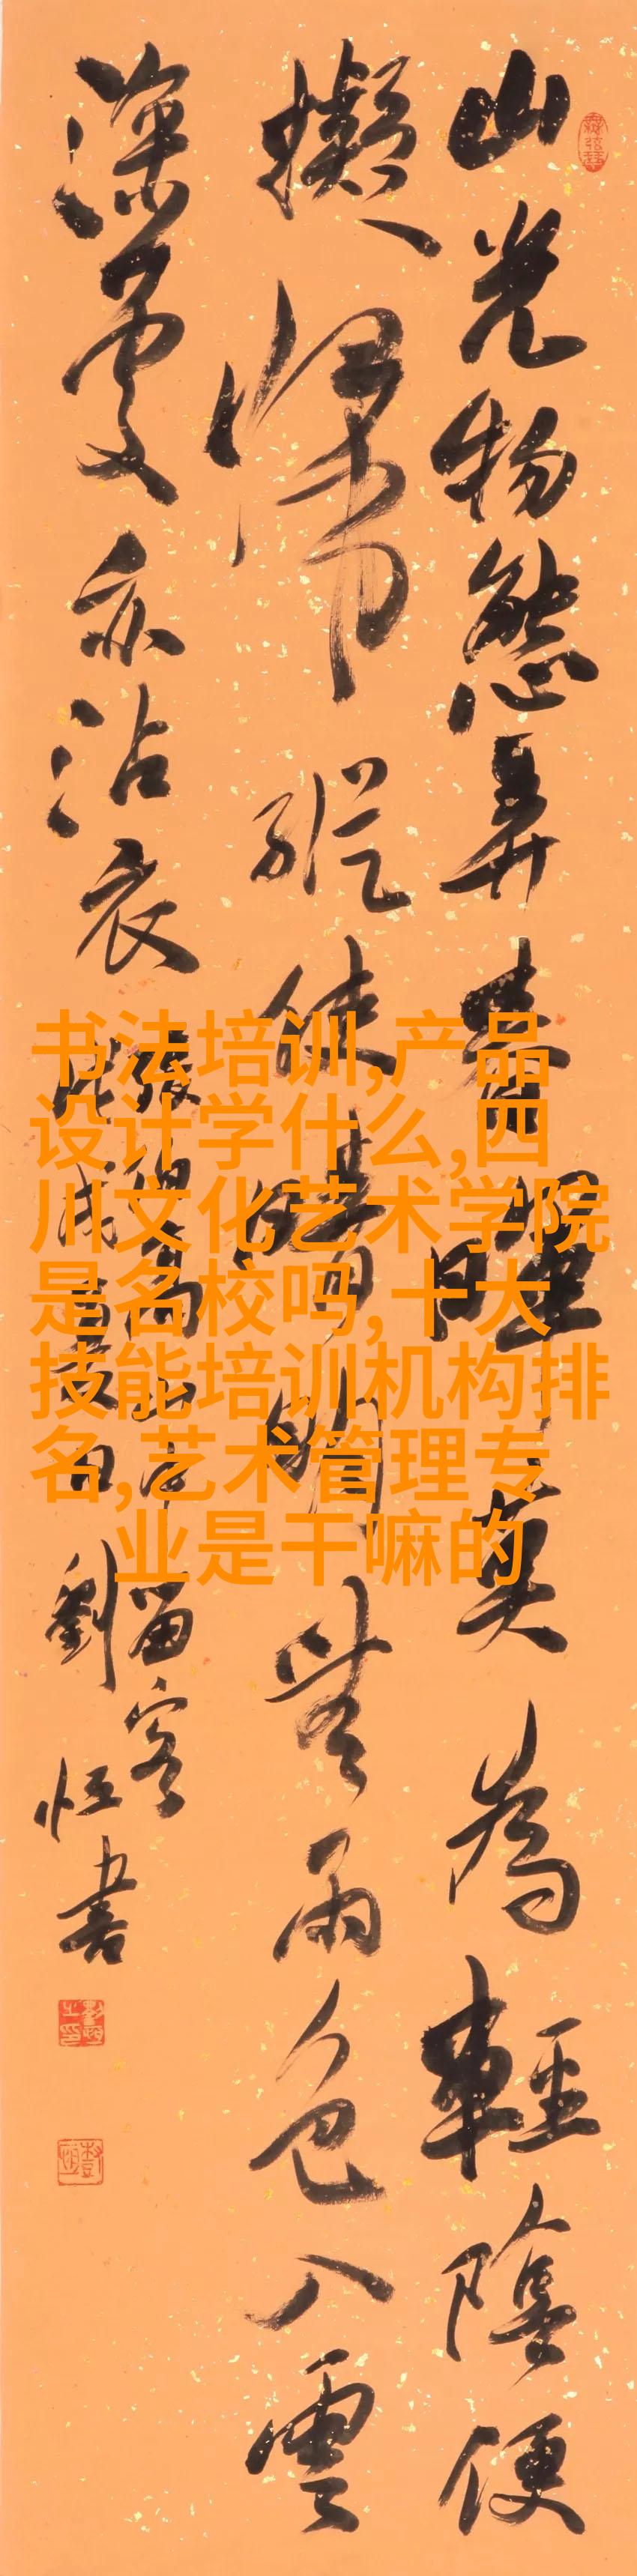 山光物態弄春暉莫為輕陰便
擬歸縱使晴明無雨色入雲
深處亦沾衣
山中留客
劉恒書
书法培训,产品
设计学什么,四
川文化艺术学院
是名校吗,十大
技能培训机构排
名,艺术管理专
业是干嘛的